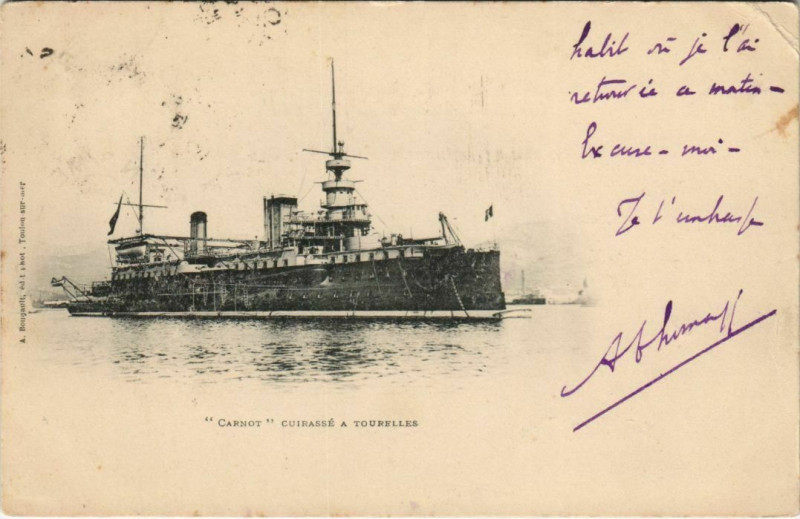 habit où je l'ai
retourvée ce matin -
Excuse - moi -
Je t'embrasse
A. Bougault, édit phot. Toulon sur-mer
"CARNOT" CUIRASSÉ A TOURELLES